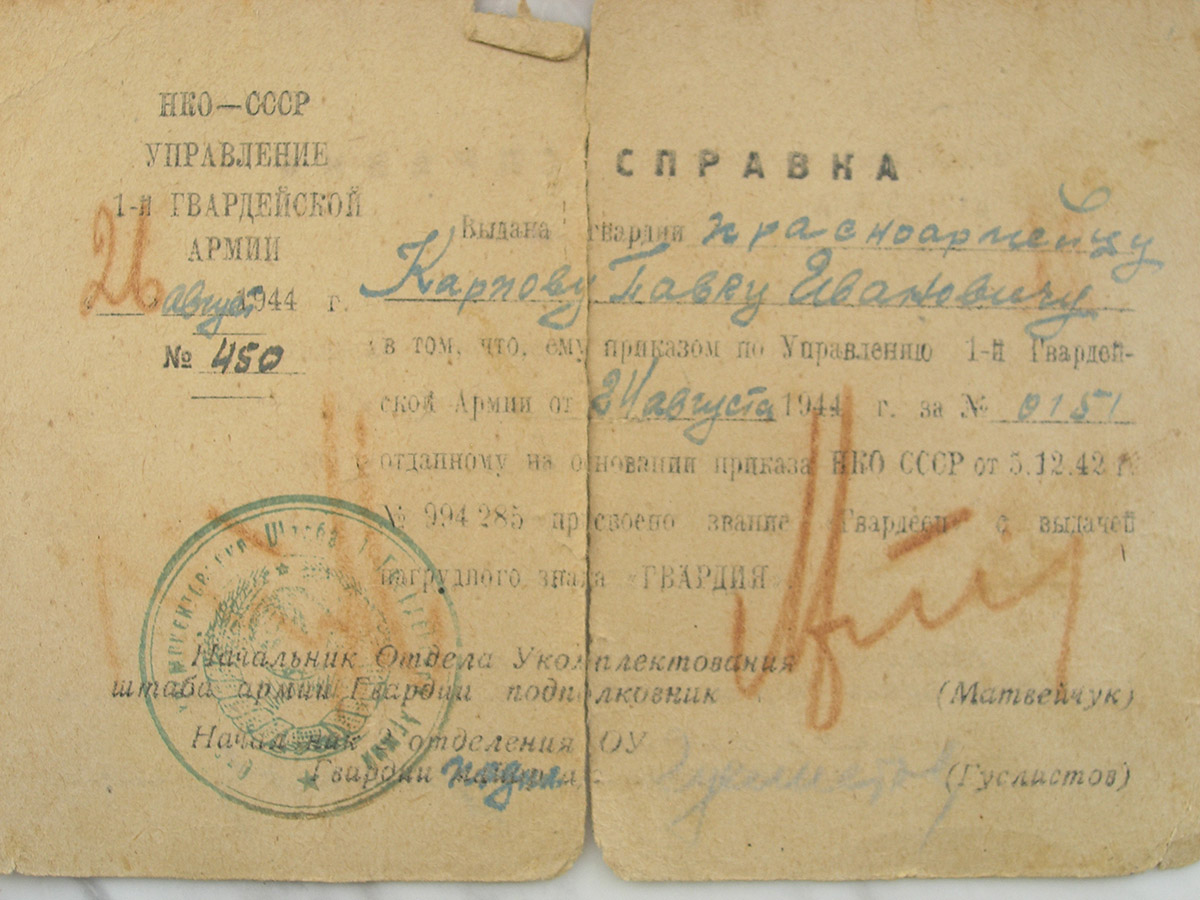 НКО—СССР
УПРАВЛЕНИЕ
1-й ГВАРДЕЙСКОЙ
АРМИИ
26 август 1944 г.
№ 450
СПРАВКА
Выдана гвардии красноармейцу
Карпову Павлу Ивановичу
в том, что, ему приказом по Управлению 1-й Гвардей-
ской Армии от 24 августа 1944 г. за № 0151
отданному на основании приказа НКО СССР от 5.12.42 г.
№ 994 285 присвоено звание «Гвардеец» с выдачей
нагрудного знака «ГВАРДИЯ»
Начальник Отдела Укомплектования
штаба армии Гвардии подполковник (Матвейчук)
Начальник отделения ОУ
Гвардии (Гуслистов)